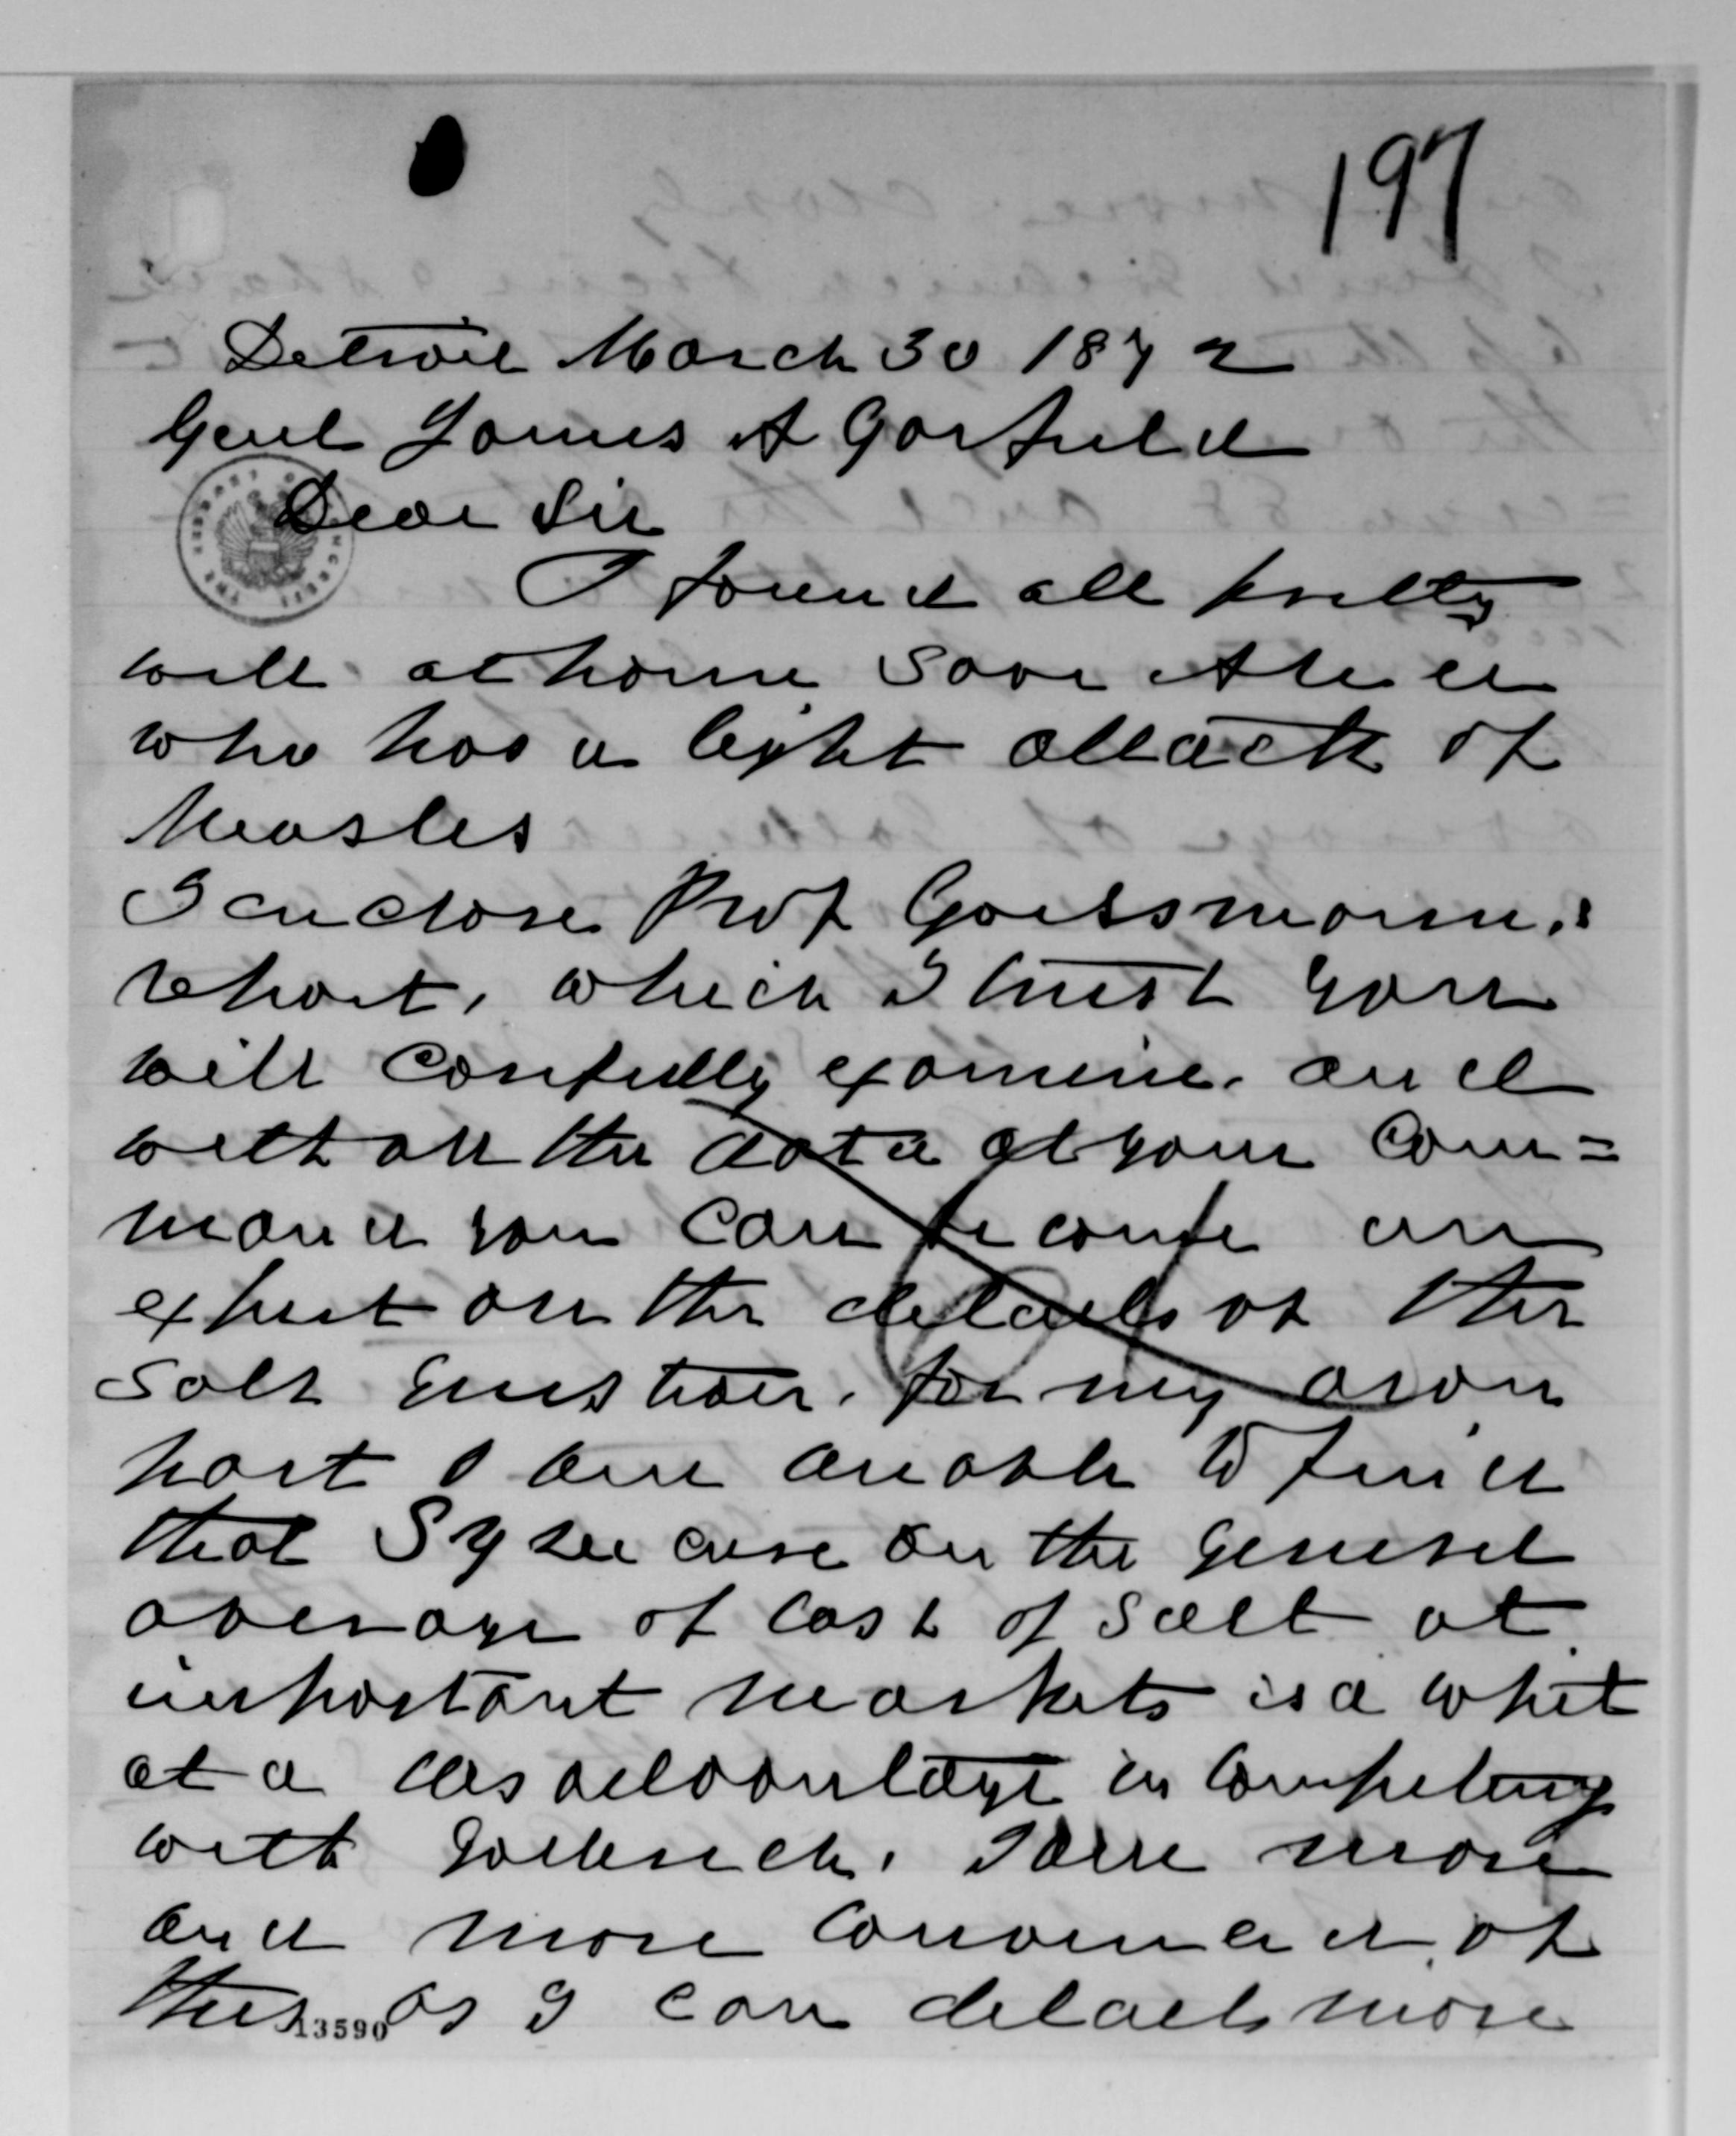 197
Detroit March 30 1872
Genl James A Garfield
Dear Sir
I found all pretty
well at home save
who has a light attack of
Measles
I enclose Prof Goessmann's
report, which I trust you
will carefully examine. and
with all the data at your Com=
mand you can become an
expert on the details of the
Salt question. for my own
part I am unable to find
that Syracuse on the general
average of cost of Salt at
important markets is a whit
at a disadvantage in Competing
with Goderich. I am more
and more convinced of
this as I can details more
13590